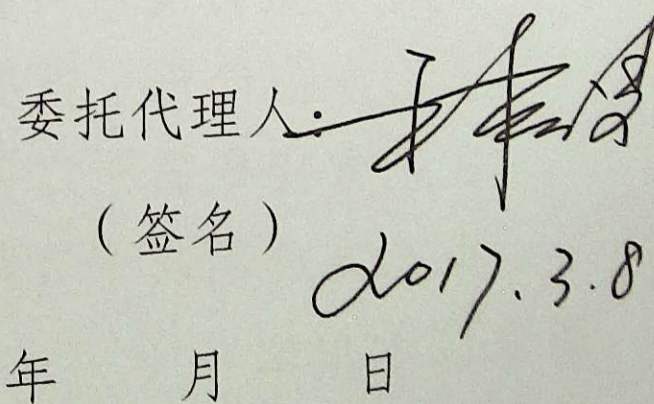 委托代理人:
(签名)
2017.3.8
年 月 日